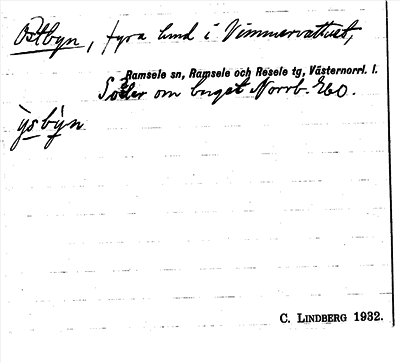 Östbyn, fyra hmd i Vimmervattnet,
Ramsele sn, Ramsele och Resele tg, Västernorrl. l.
Söder om berget Norrb. EbO.
ỳsbỳn
C. LINDBERG 1932.